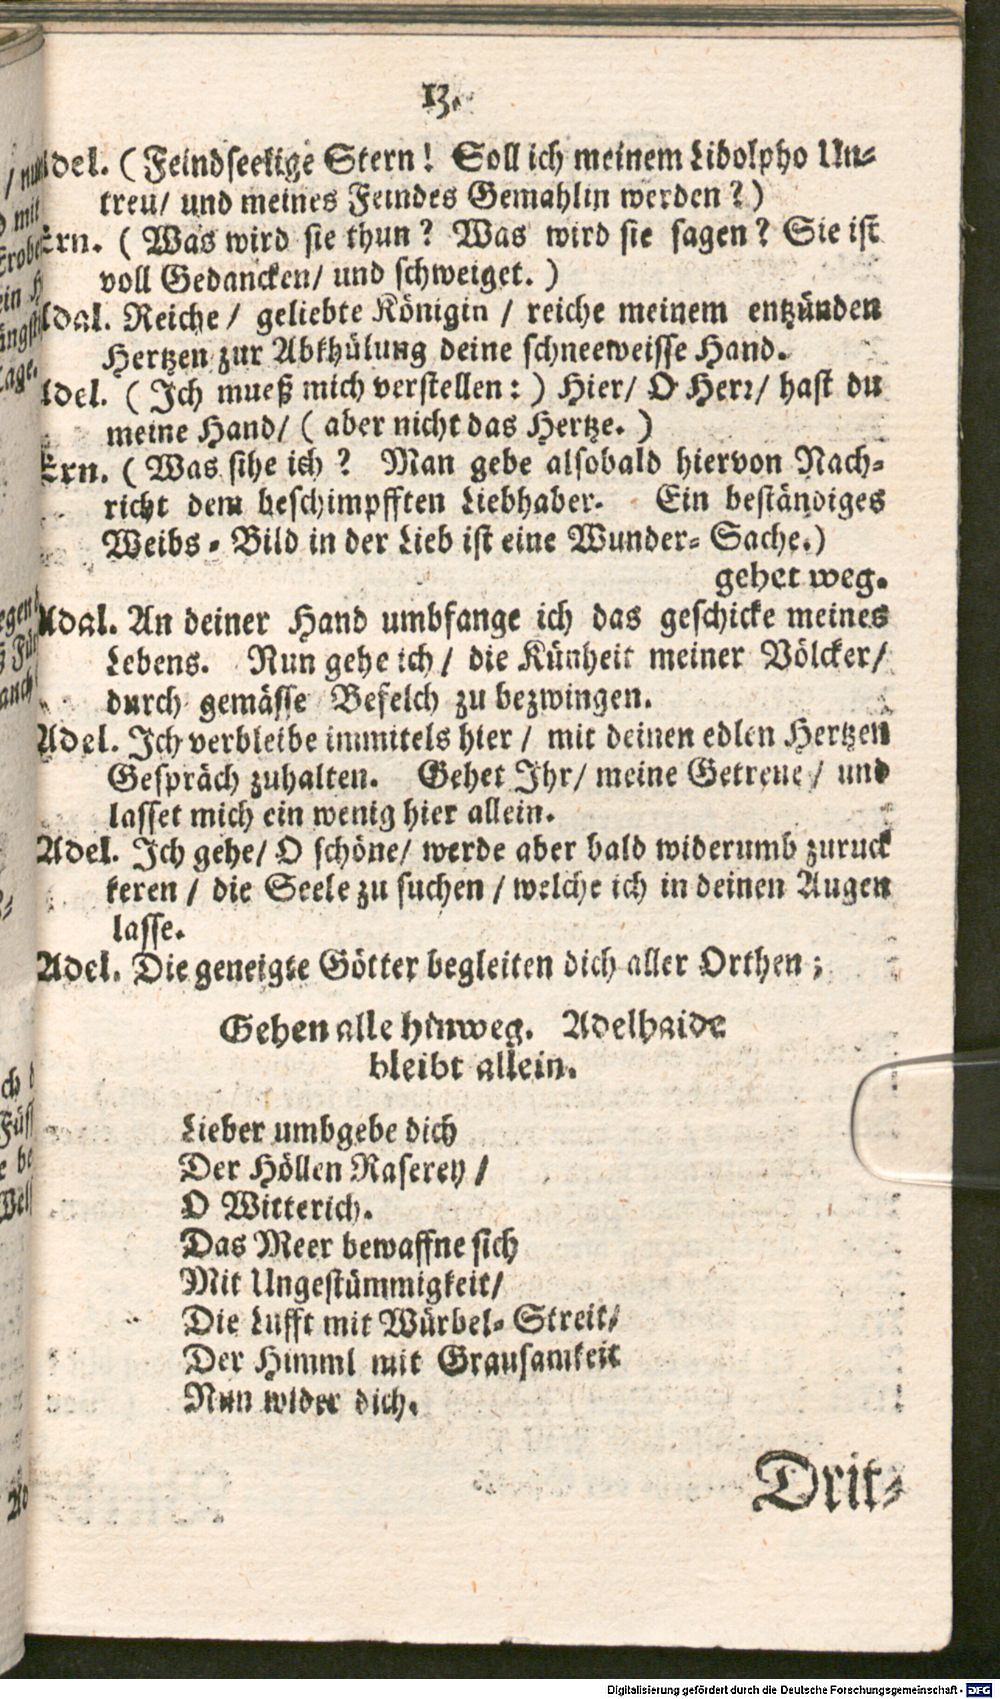 13.
Adel. (Feindseelige Stern! Soll ich meinem Lidolpho Un-
treu/ und meines Feindes Gemahlin werden?)
Ern. (Was wird sie thun? Was wird sie sagen? Sie ist
voll Gedancken/ und schweiget.)
Adal. Reiche / geliebte Königin / reiche meinem entzünden
Hertzen zur Abkhülung deine schneeweisse Hand.
Adel. (Ich mueß mich verstellen:) Hier/ O Herr/ hast du
meine Hand/ (aber nicht das Hertze.)
Ern. (Was sihe ich? Man gebe alsobald hiervon Nach-
richt dem beschimpfften Liebhaber. Ein beständiges
Weibs-Bild in der Lieb ist eine Wunder-Sache.)
gehet weg.
Adal. An deiner Hand umbfange ich das geschicke meines
Lebens. Nun gehe ich/ die Künheit meiner Völcker/
durch gemässe Befelch zu bezwingen.
Adel. Ich verbleibe immitels hier / mit deinen edlen Hertzen
Gespräch zuhalten. Gehet Ihr/ meine Getreue / und
lasset mich ein wenig hier allein.
Adel. Ich gehe/ O schöne/ werde aber bald widerumb zuruck
keren / die Seele zu suchen / welche ich in deinen Augen
lasse.
Adel. Die geneigte Götter begleiten dich aller Orthen;
Gehen alle hinweg. Adelhaide
bleibt allein.
Lieber umbgebe dich
Der Höllen Raserey /
O Witterich.
Das Meer bewaffne sich
Mit Ungestümmigkeit/
Die Lufft mit Würbel-Streit/
Der Himml mit Grausamkeit
Nun wider dich.
Drit-
Digitalisierung gefördert durch die Deutsche Forschungsgemeinschaft - DFG